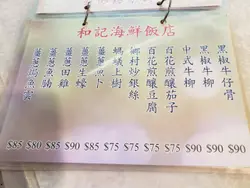 和記海鮮飯店
黑椒牛仔骨
黑椒牛柳
中式牛柳
百花煎釀茄子
百花煎釀豆腐
鄉村炒銀絲
螞蟻上樹
薑蔥魚卜
薑蔥生蠔
薑蔥田雞
薑蔥魚
薑蔥
$85 $80 $85 $90 $85 $75 $75 $75 $75 $90 $90 $90